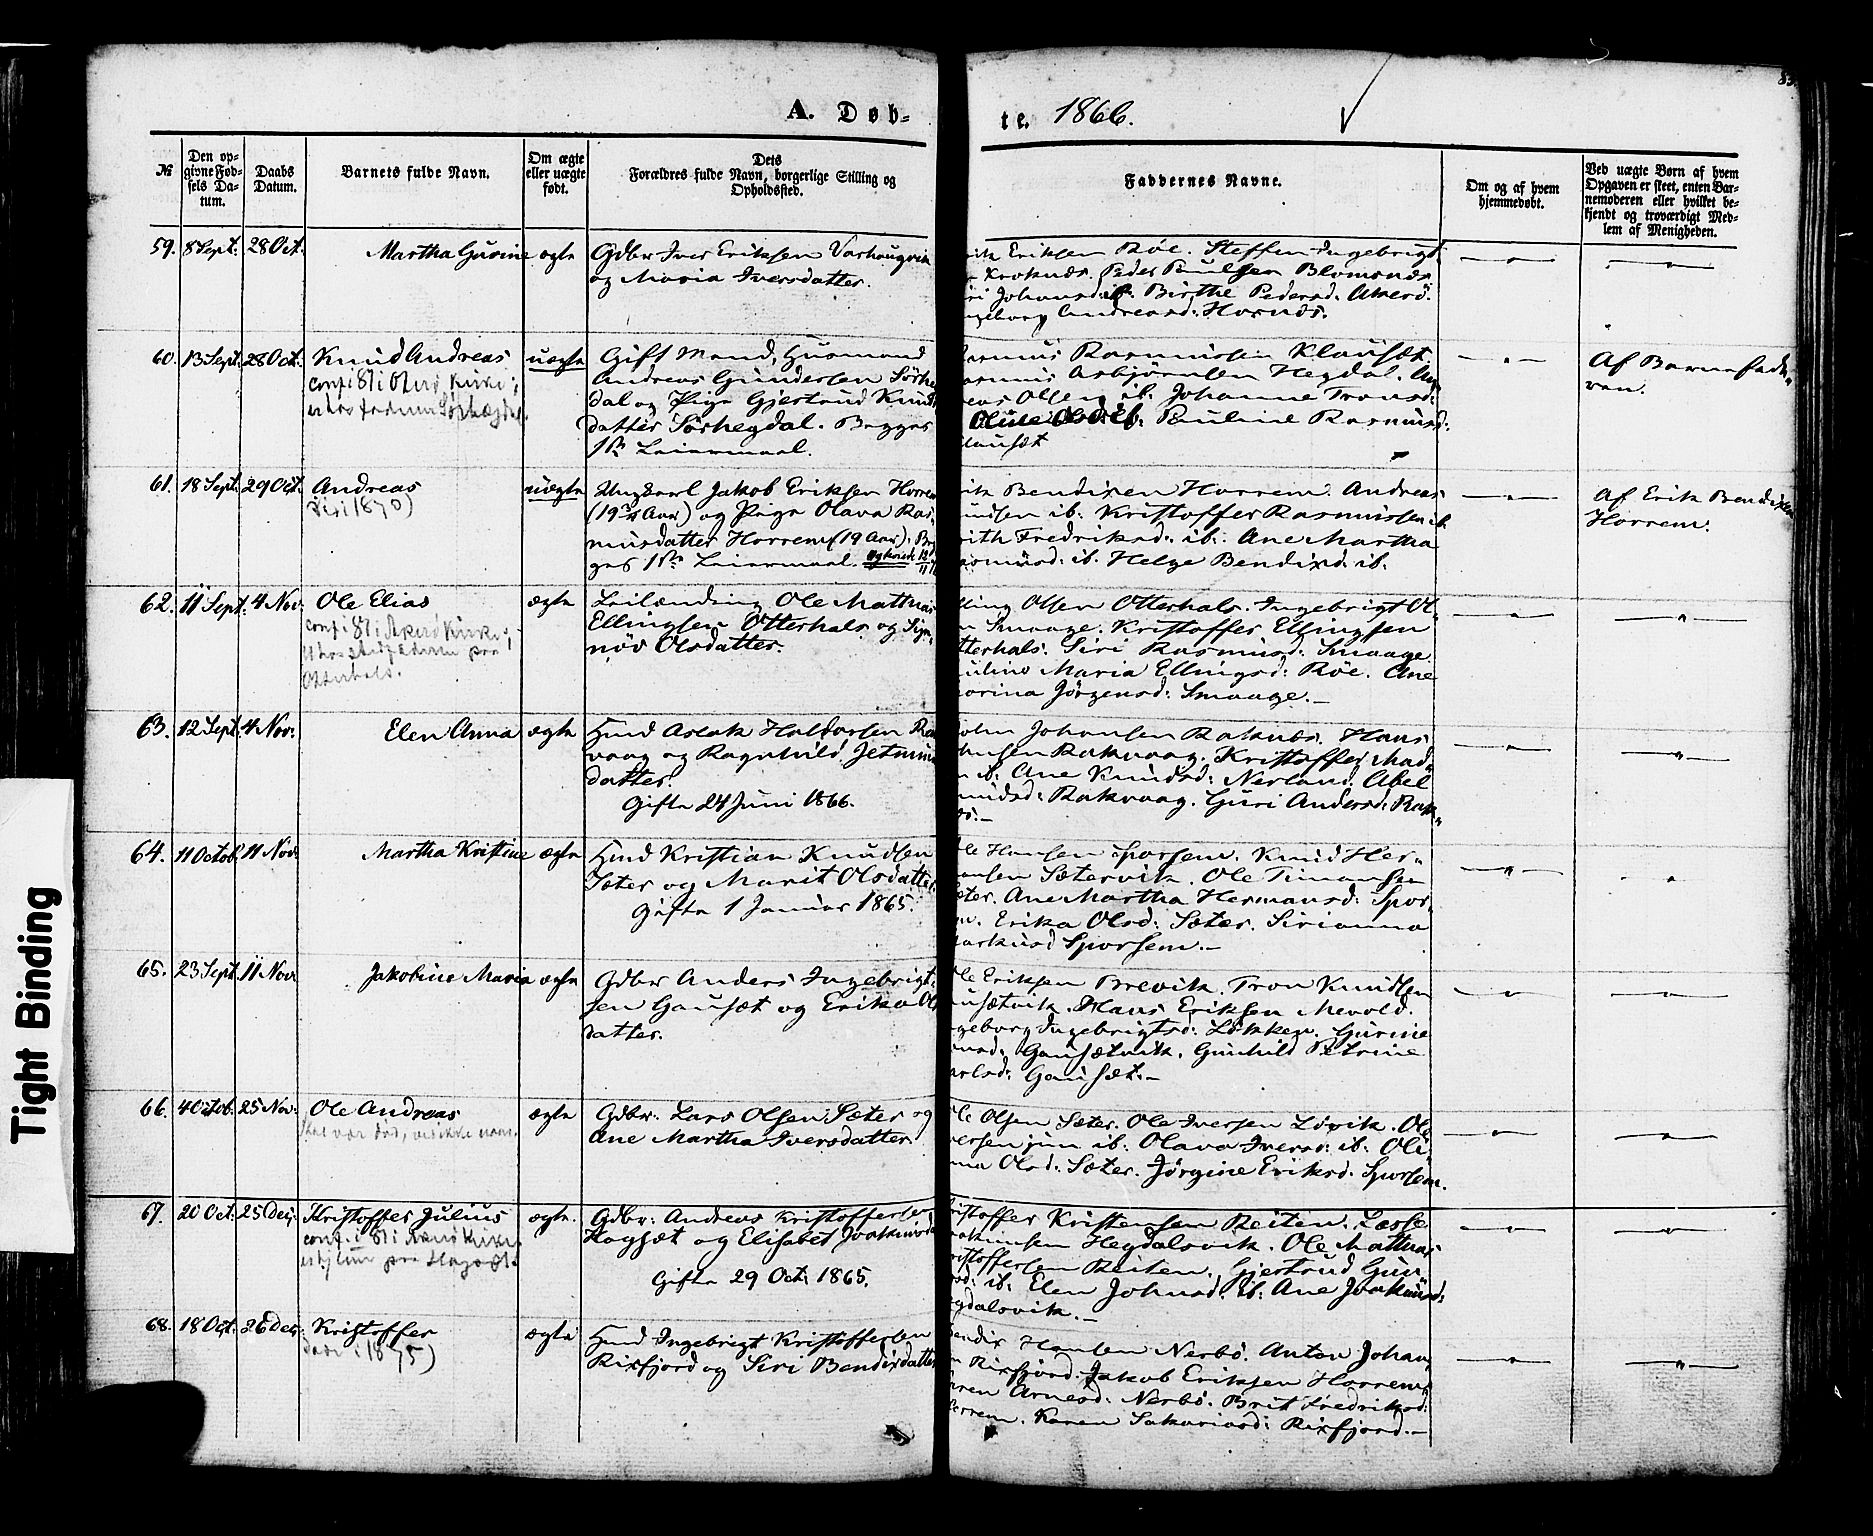 83
A. Døb-
te. 1866.
№
Den op-
givne Fød-
sels Da-
tum.
Daabs
Datum.
Barnets fulde Navn.
Om ægte
eller uægte
født.
Dets
Forældres fulde Navn, borgerlige Stilling og
Opholdssted.
Faddernes Navne.
Om og af hvem
hjemmedøbt.
Ved uægte Børn af hvem
Opgaven er skeet, enten Bar-
nemoderen eller hvilket be-
kjendt og troværdigt Med-
lem af Menigheden.
59. 8 Sept. 28 Oct. Martha Gurine ægte
Gdbr Iver Eriksen
og Maria Iversdatter.
Eriksen Röe. Steffen Ingebrigt
Kroknæs. Peder Paulsen Blomsnæs
Johansd: ib: Birthe Pedersd: Akerö.
Andreasd: Hornæs.
60. 13 Sept. 28 Oct. Knud Andreas uægte
Gift Mand, Husmand
Andreas Gundersen Sörhe
dal og Pige Gjertrud Knud
datter Sörhegdal. Begges
1ste Leiermaal.
Rasmussen Klausæt
Asbjörnsen Hegdal.
Olsen ib. Johanne Tronsd:
Oline Olsd: ib. Pauline Rasmusd:
lausæt
Af Barnefade-
ren.
61. 18 Sept. 29 Oct. Andreas uægte
Ungkarl Jakob Eriksen Horrem
(19 Aar) og Pige Olava Ras-
musdatter Horrem (19 Aar). Beg
ges 1ste Leiermaal.
Bendixen Horrem. Andreas
ib. Kristoffer Rasmussen ib.
Fredriksd: ib: Ane Martha
ib. Helge Bendixd: ib.
Af Erik Bendixen
Horrem.
62. 11 Sept. 4 Nov. Ole Elias ægte
conf. i 81 i Akerö Kirke;
Otterhals.
Leilænding Ole Mathias
Ellingsen Otterhals og Syn-
növ Olsdatter.
Olsen Otterhals. Ingebrigt Ol-
Smaage. Kristoffer Ellingsen
tterhals: Siri Rasmusd: Smaage
Maria Ellingsd: Röe. Ane
Jörgensd: Smaage.—
63. 12 Sept. 4 Nov. Elen Anna ægte
Hmd Aslak Haldorsen
vaag og Ragnhild Jetmund
datter.
Gifte 24 Juni 1866.
Johansen Raknæs. Hans
Rakvaag. Kristoffer Mad-
ib. Ane Knudsd: Nerland. Abel
Rakvaag. Guri Andersd: Rak-
64. 11 Octob. 11 Nov. Martha Kristine ægte
Hmd Kristian Knudsen
Sæter og Marit Olsdatter.
Gifte 1 Januar 1865.
Hansen Sporsem. Knud Her-
Sætervik. Ole Timansen
Sæter. Ane Martha Hermansd: Spor-
Erika Olsd: Sæter. Sirianna
Sporsem.—
65. 23 Sept. 11 Nov. Jakobine Maria ægte
Gdbr Anders Ingebrigt-
sen Gausæt og Erika Ols
datter.
Eriksen Brevik. Tron Knudsen
Hans Eriksen Mevold.
Ingebrigtsd: Lökken. Gurine
Gausætvik. Gunhild Petrine
Gausæt.—
66. 4 Octob. 25 Nov. Ole Andreas ægte
Gdbr. Lars Olsen Sæter og
Ane Martha Iversdatter.
Olsen Sæter. Ole Iversen Lövik. Ole
versen jun ib. Olava Iversd: ib. Oli-
na Olsd: Sæter. Jörgine Eriksd: Sporsem.
67. 20 Oct. 25 Dec. Kristoffer Julius ægte.
conf. i 81 i Akerö Kirke
Gdbr: Andreas Kristoffersen
Hagsæt og Elisabet Joakimsd
Gifte 29 Oct. 1865.
Kristensen Reiten. Lasse
Hegdalsvik. Ole Mathias
Kristoffersen Reiten. Gjertrud Gun
ib. Elen Johnsd: ib. Ane Joakimsd:
gdalsvik.—
68. 18 Oct. 26 Dec. Kristoffer ægte
Hmd Ingebrigt Kristoffersen
Rixfjord og Siri Bendixdatter
Hansen Nerbö. Anton Johan
Rixfjord. Jakob Eriksen Horrem.
Arnesd: Nerbö. Brit Fredriksd:
Horrem. Karen Sakariasd: Rixfjord.—
Tight Binding